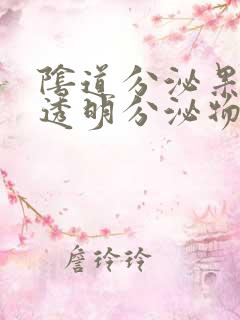 陰道分泌果
透明分泌物
詹玲玲